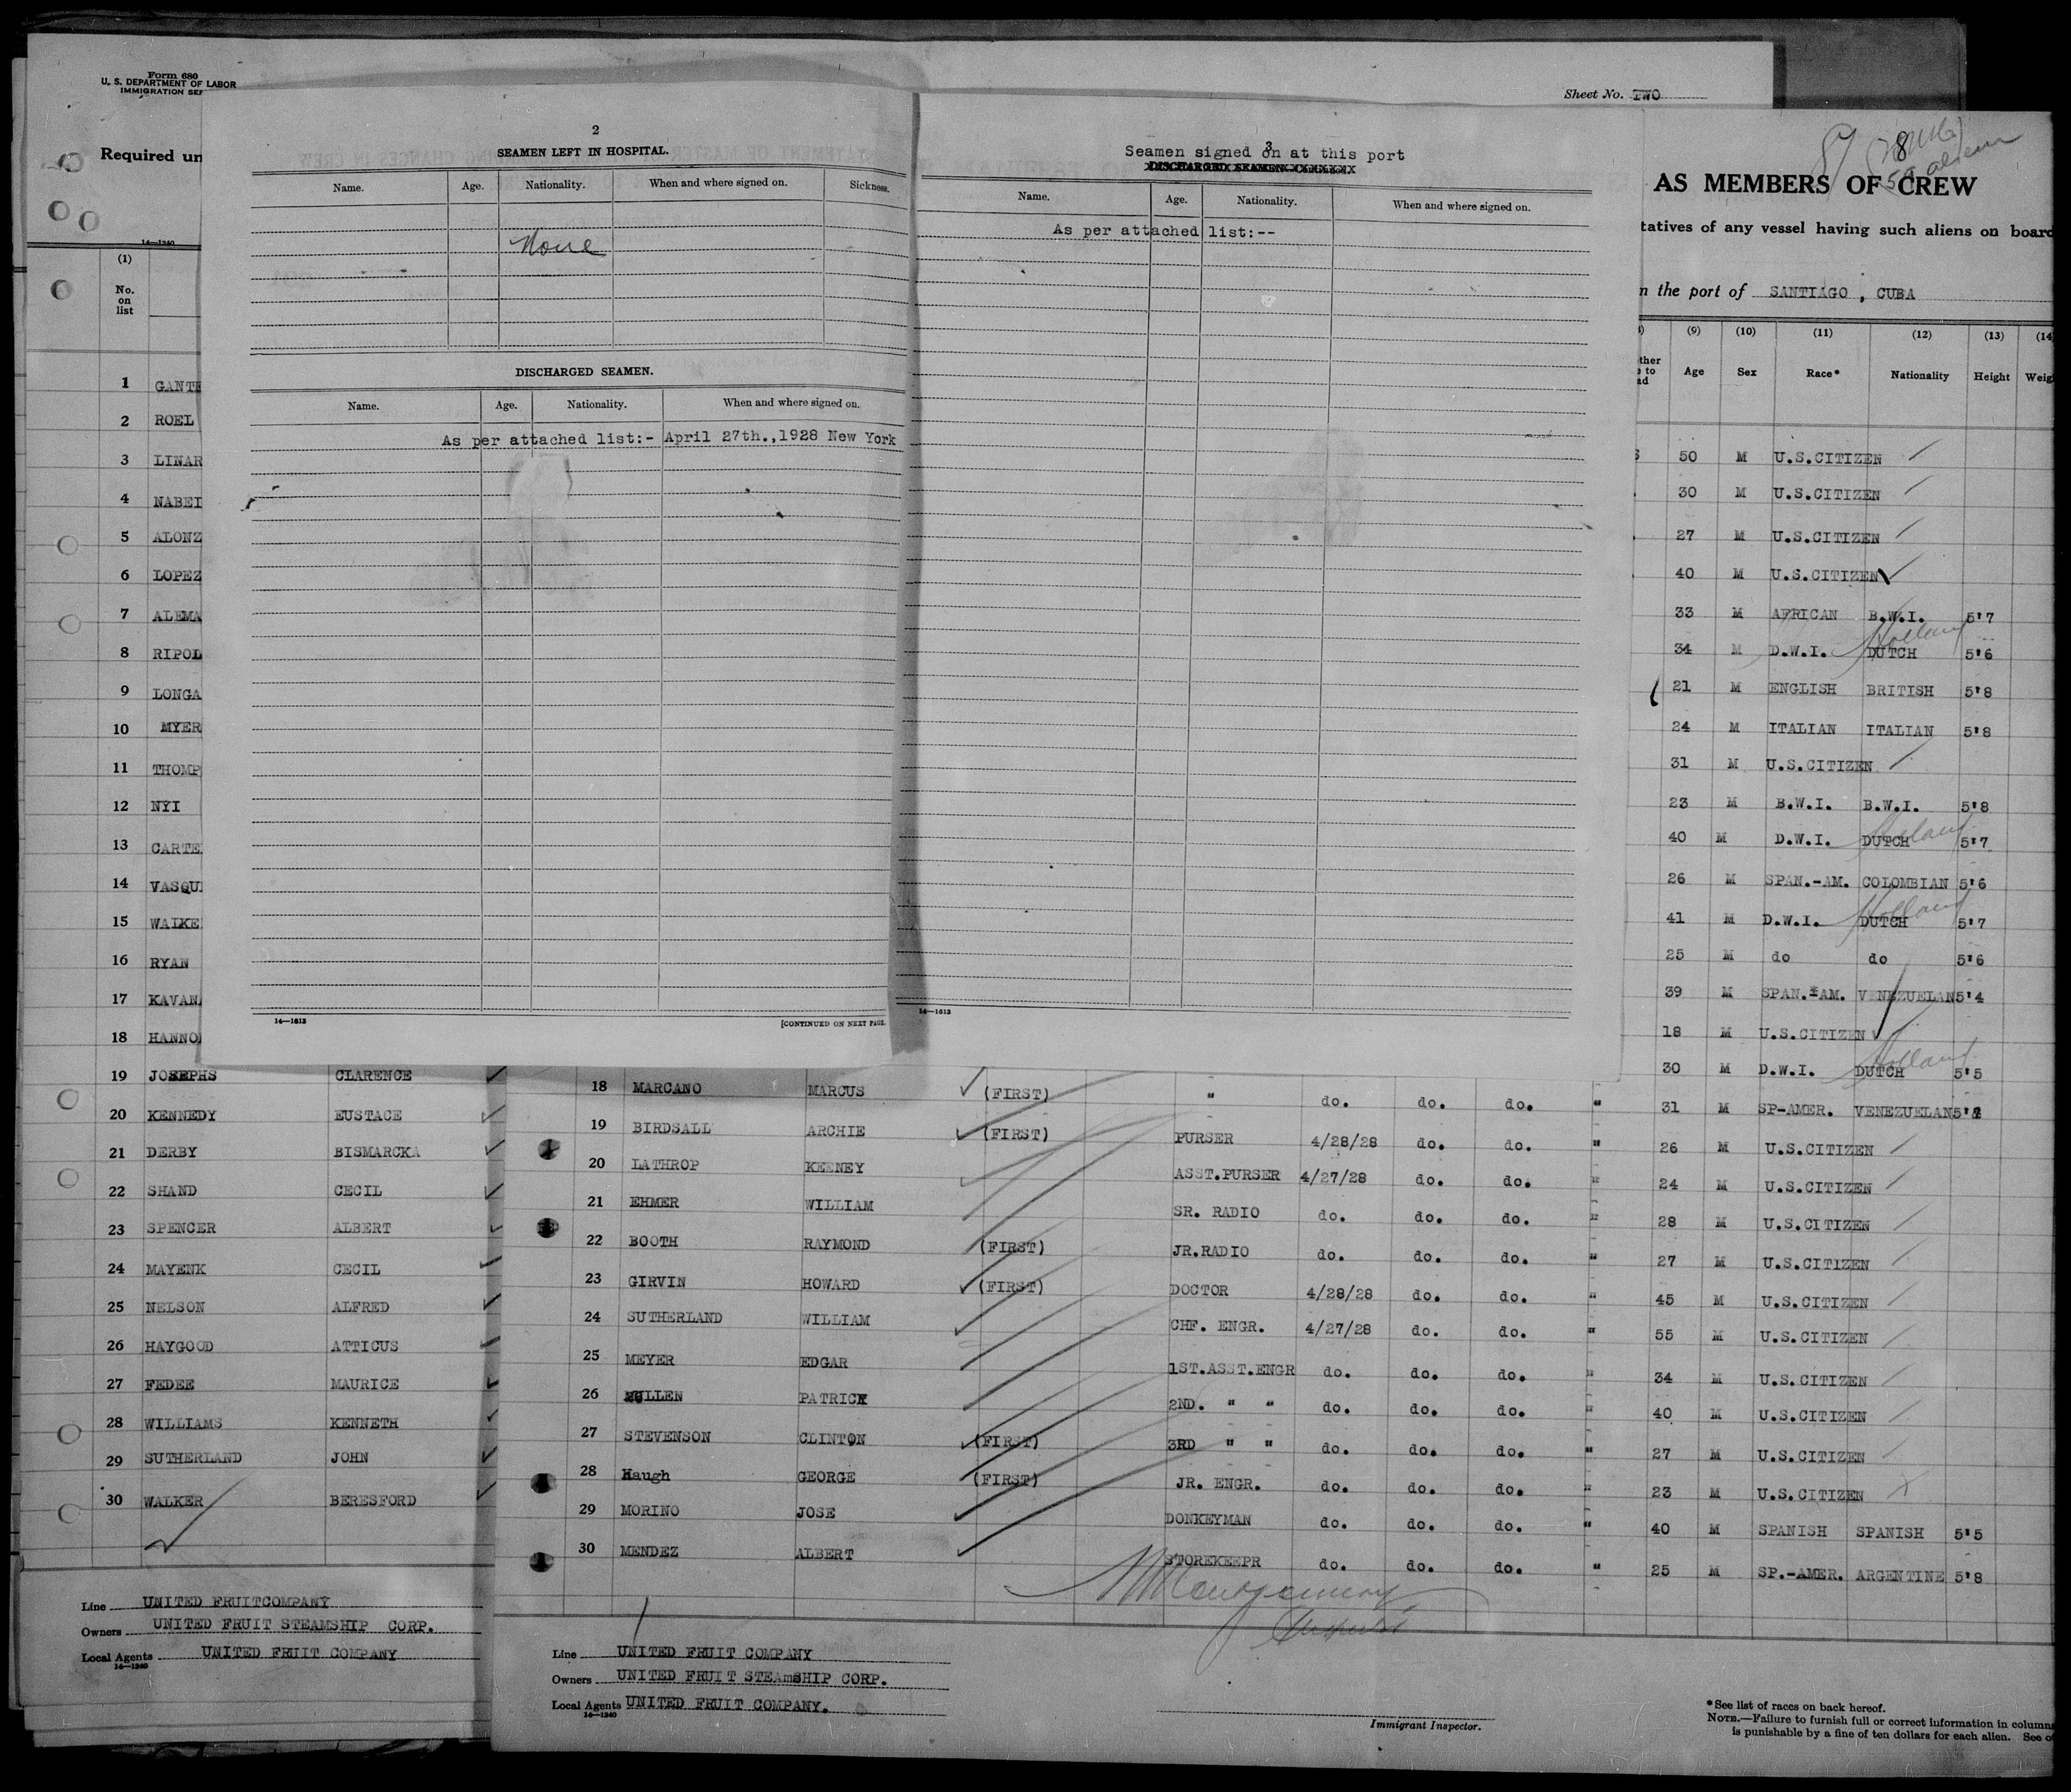 Form 680
U. S. DEPARTMENT OF LABOR
IMMIGRATION SE
Required un
14—1240
(1)
No.
on
list
1 GANTE
2 ROEL
3 LINAR
4 NABEI
5 ALONZ
6 LOPEZ
7 ALEMA
8 RIPOL
9 LONGA
10 MYER
11 THOMP
12 NYI
13 CARTE
14 VASQU
15 WALKE
16 RYAN
17 KAVANA
18 HANNO
19 JOSEPHS CLARENCE
20 KENNEDY EUSTACE
21 DERBY BISMARCKA
22 SHAND CECIL
23 SPENCER ALBERT
24 MAYENK CECIL
25 NELSON ALFRED
26 HAYGOOD ATTICUS
27 FEDEE MAURICE
28 WILLIAMS KENNETH
29 SUTHERLAND JOHN
30 WALKER BERESFORD
Line UNITED FRUITCOMPANY
Owners UNITED FRUIT STEAMSHIP CORP.
Local Agents UNITED FRUIT COMPANY
14—1240
2
SEAMEN LEFT IN HOSPITAL.
Name. Age. Nationality. When and where signed on. Sickness.
None
DISCHARGED SEAMEN.
Name. Age. Nationality. When and where signed on.
As per attached list:- April 27th.,1928 New York
14—1613
[CONTINUED ON NEXT PAGE.
3
Seamen signed on at this port
DISCHARGED SEAMEN
Name. Age. Nationality. When and where signed on.
As per attached list:--
14—1613
Sheet No. TWO
8
AS MEMBERS OF CREW
tatives of any vessel having such aliens on board
n the port of SANTIAGO , CUBA
(9) (10) (11) (12) (13) (14
ther
e to
ad
Age Sex Race* Nationality Height Weig
50 M U.S.CITIZEN
30 M U.S.CITIZEN
27 M U.S.CITIZEN
40 M U.S.CITIZEN
33 M AFRICAN B.W.I. 5'7
Holland
34 M D.W.I. DUTCH 5'6
21 M ENGLISH BRITISH 5'8
24 M ITALIAN ITALIAN 5'8
31 M U.S.CITIZEN
23 M B.W.I. B.W.I. 5'8
Holland
40 M D.W.I. DUTCH 5'7
26 M SPAN.-AM. COLOMBIAN 5'6
Holland
41 M D.W.I. DUTCH 5'7
25 M do do 5'6
39 M SPAN.-AM. VENEZUELAN 5'4
18 M U.S.CITIZEN
Holland
30 M D.W.I. DUTCH 5'5
18 MARCANO MARCUS (FIRST) " do. do. do. " 31 M SP-AMER. VENEZUELAN
19 BIRDSALL ARCHIE (FIRST) PURSER 4/28/28 do. do. " 26 M U.S.CITIZEN
20 LATHROP KEENEY ASST.PURSER 4/27/28 do. do. " 24 M U.S.CITIZEN
21 EHMER WILLIAM SR. RADIO do. do. do. " 28 M U.S.CITIZEN
22 BOOTH RAYMOND (FIRST) JR.RADIO do. do. do. " 27 M U.S.CITIZEN
23 GIRVIN HOWARD (FIRST) DOCTOR 4/28/28 do. do. " 45 M U.S.CITIZEN
24 SUTHERLAND WILLIAM CHF. ENGR. 4/27/28 do. do. " 55 M U.S.CITIZEN
25 MEYER EDGAR 1ST.ASST.ENGR do. do. do. " 34 M U.S.CITIZEN
26 MULLEN PATRICK 2ND. " " do. do. do. " 40 M U.S.CITIZEN
27 STEVENSON CLINTON (FIRST) 3RD " " do. do. do. " 27 M U.S.CITIZEN
28 Haugh GEORGE (FIRST) JR. ENGR. do. do. do. " 23 M U.S.CITIZEN
29 MORINO JOSE DONKEYMAN do. do. do. " 40 M SPANISH SPANISH 5'5
30 MENDEZ ALBERT STOREKEEPR do. do. do. " 25 M SP.-AMER. ARGENTINE 5'8
Line UNITED FRUIT COMPANY
Owners UNITED FRUIT STEAmSHIP CORP.
Local Agents UNITED FRUIT COMPANY.
14—1240
Immigrant Inspector.
*See list of races on back hereof.
NOTE.—Failure to furnish full or correct information in columns
is punishable by a fine of ten dollars for each alien. See o